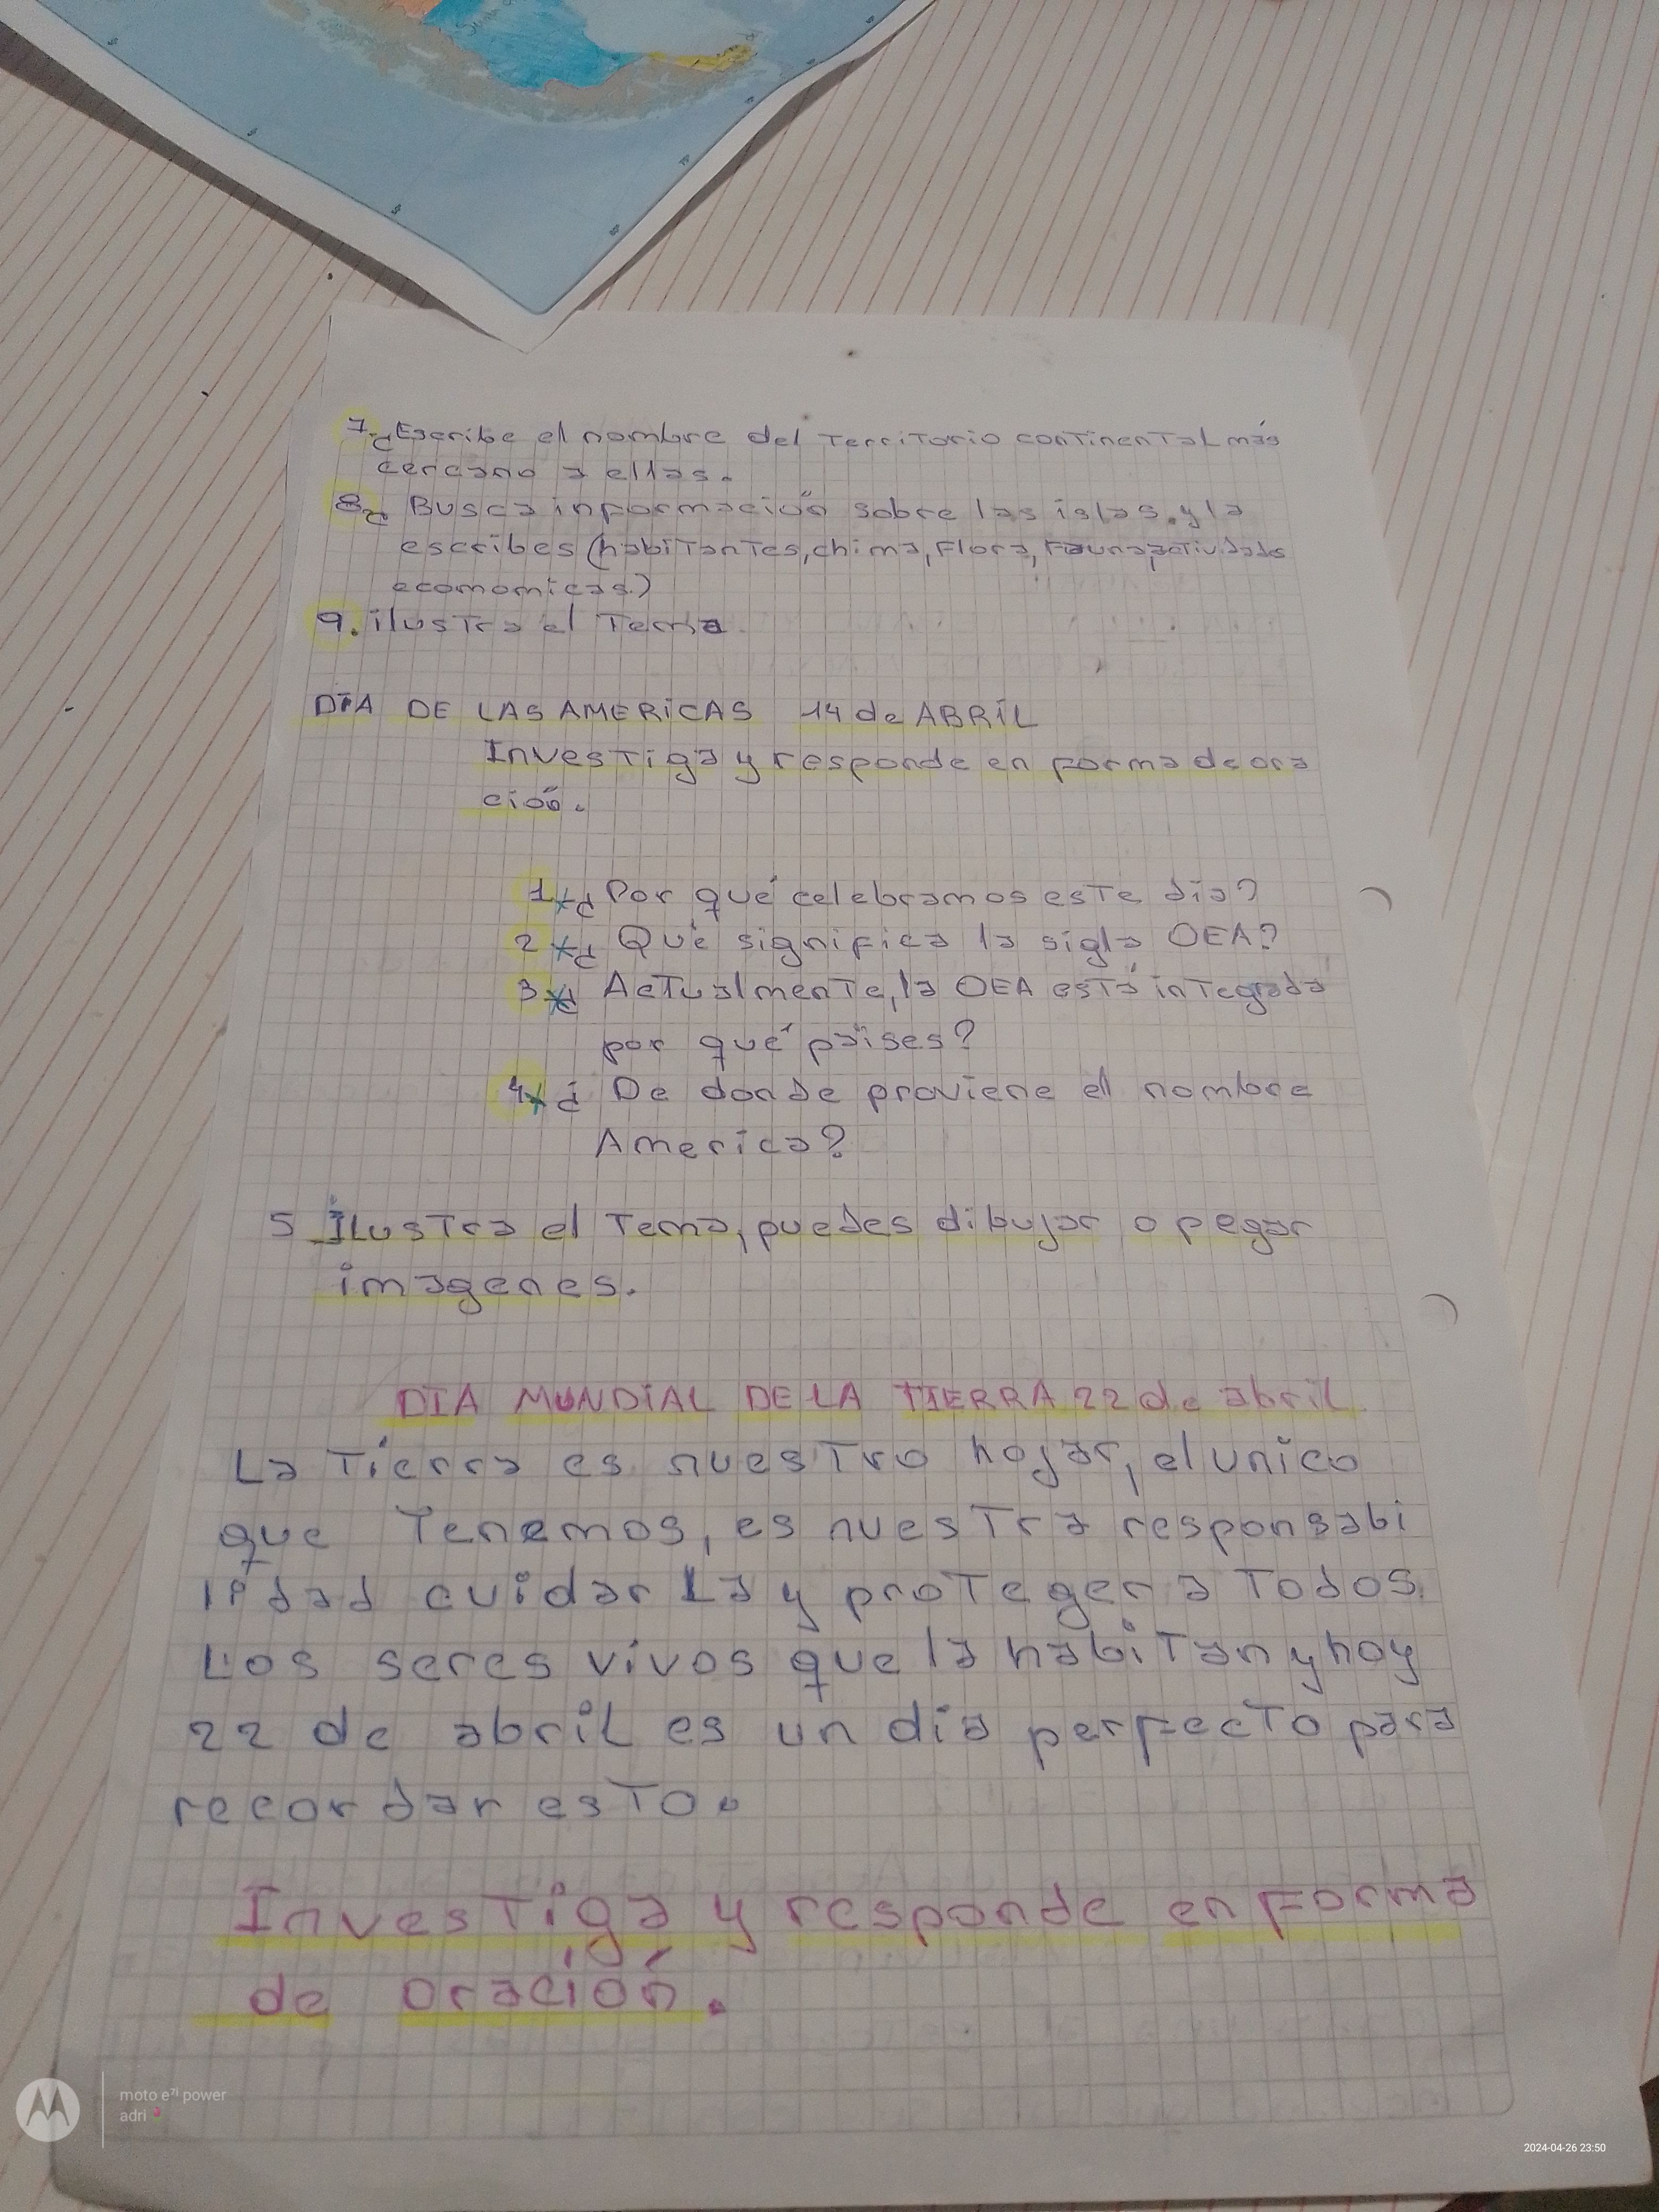 7-¿Escribe el nombre del Territorio continental más
cercano a ellas.
8-¿ Busca información sobre las islas.y la
escribes (habitantes, chima, Flora, Fauna, actividades
ecomomicas.)
9. ilustra el Tema
DÍA DE LAS AMERICAS 14 de ABRIL
Investiga y responde en forma de ora
ción.
1*¿ Por qué celebramos este dia?
2*¿ Qué significa la sigla OEA?
3*¿ Actualmente, la OEA está integrada
por qué païses?
4*¿ De donde proviene el nombre
America?
5 Ilustra el Tema, puedes dibujar o pegar
imagenes.
DIA MUNDIAL DE LA TIERRA 22 de abril
La Tierra es nuestro hogar, el unico
que Tenemos, es nuestra responsabi
lidad cuidar La y proteger a Todos.
Los seres vivos que la habitan y hoy
22 de abril es un dia perfecto para
recordar esto.
Investiga y responde en Forma
de oración.
moto e⁷ⁱ power
adri
2024-04-26 23:50